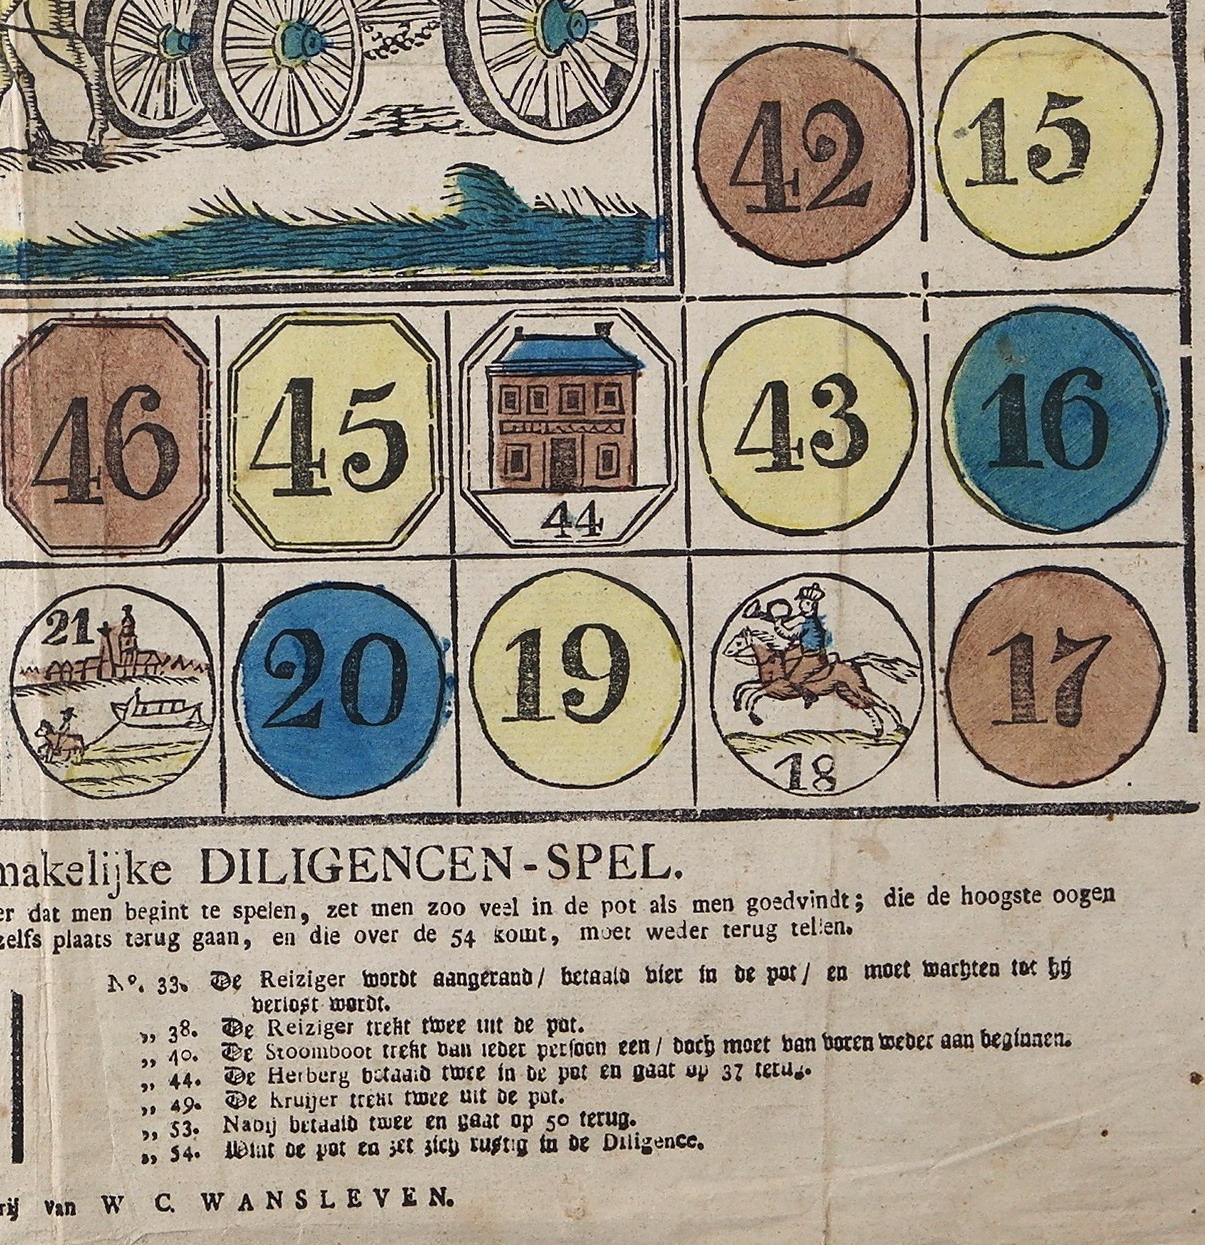 42 15
46 45 44 43 16
21 20 19 18 17
makelijke DILIGENCEN-SPEL.
er dat men begint te spelen, zet men zoo veel in de pot als men goedvindt; die de hoogste oogen
zelfs plaats terug gaan, en die over de 54 komt, moet weder terug tellen.
No. 33. De Reiziger wordt aangerand / betaald vier in de pot / en moet wachten tot hij
verlost wordt.
„ 38. De Reiziger trekt twee uit de pot.
„ 40. De Stoomboot trekt van ieder persoon een / doch moet van voren weder aan beginnen.
„ 44. De Herberg betaald twee in de pot en gaat op 37 terug.
„ 49. De Kruijer trekt twee uit de pot.
„ 53. Nabij betaald twee en gaat op 50 terug.
„ 54. Wint de pot en zet zich rustig in de Diligence.
rij van W C. WANSLEVEN.